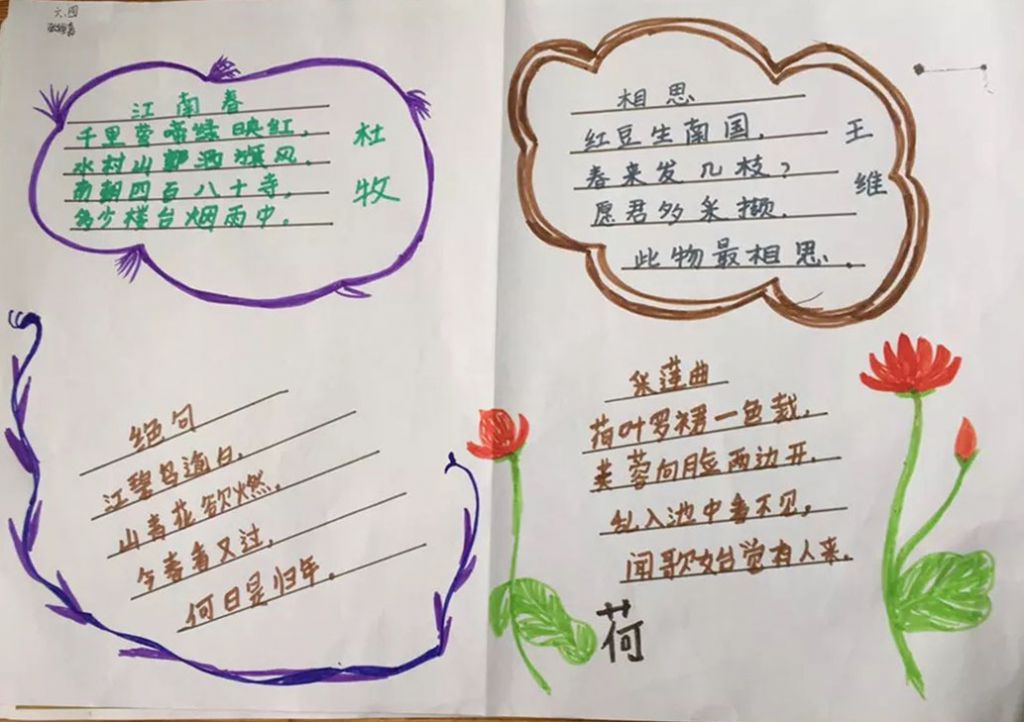 六.四
江南春
千里莺啼绿映红，
水村山郭酒旗风。
南朝四百八十寺，
多少楼台烟雨中。
杜
牧
相思
红豆生南国，
春来发几枝？
愿君多采撷，
此物最相思。
王
维
绝句
江碧鸟逾白，
山青花欲燃。
今春看又过，
何日是归年。
采莲曲
荷叶罗裙一色裁，
芙蓉向脸两边开。
乱入池中看不见，
闻歌始觉有人来。
荷